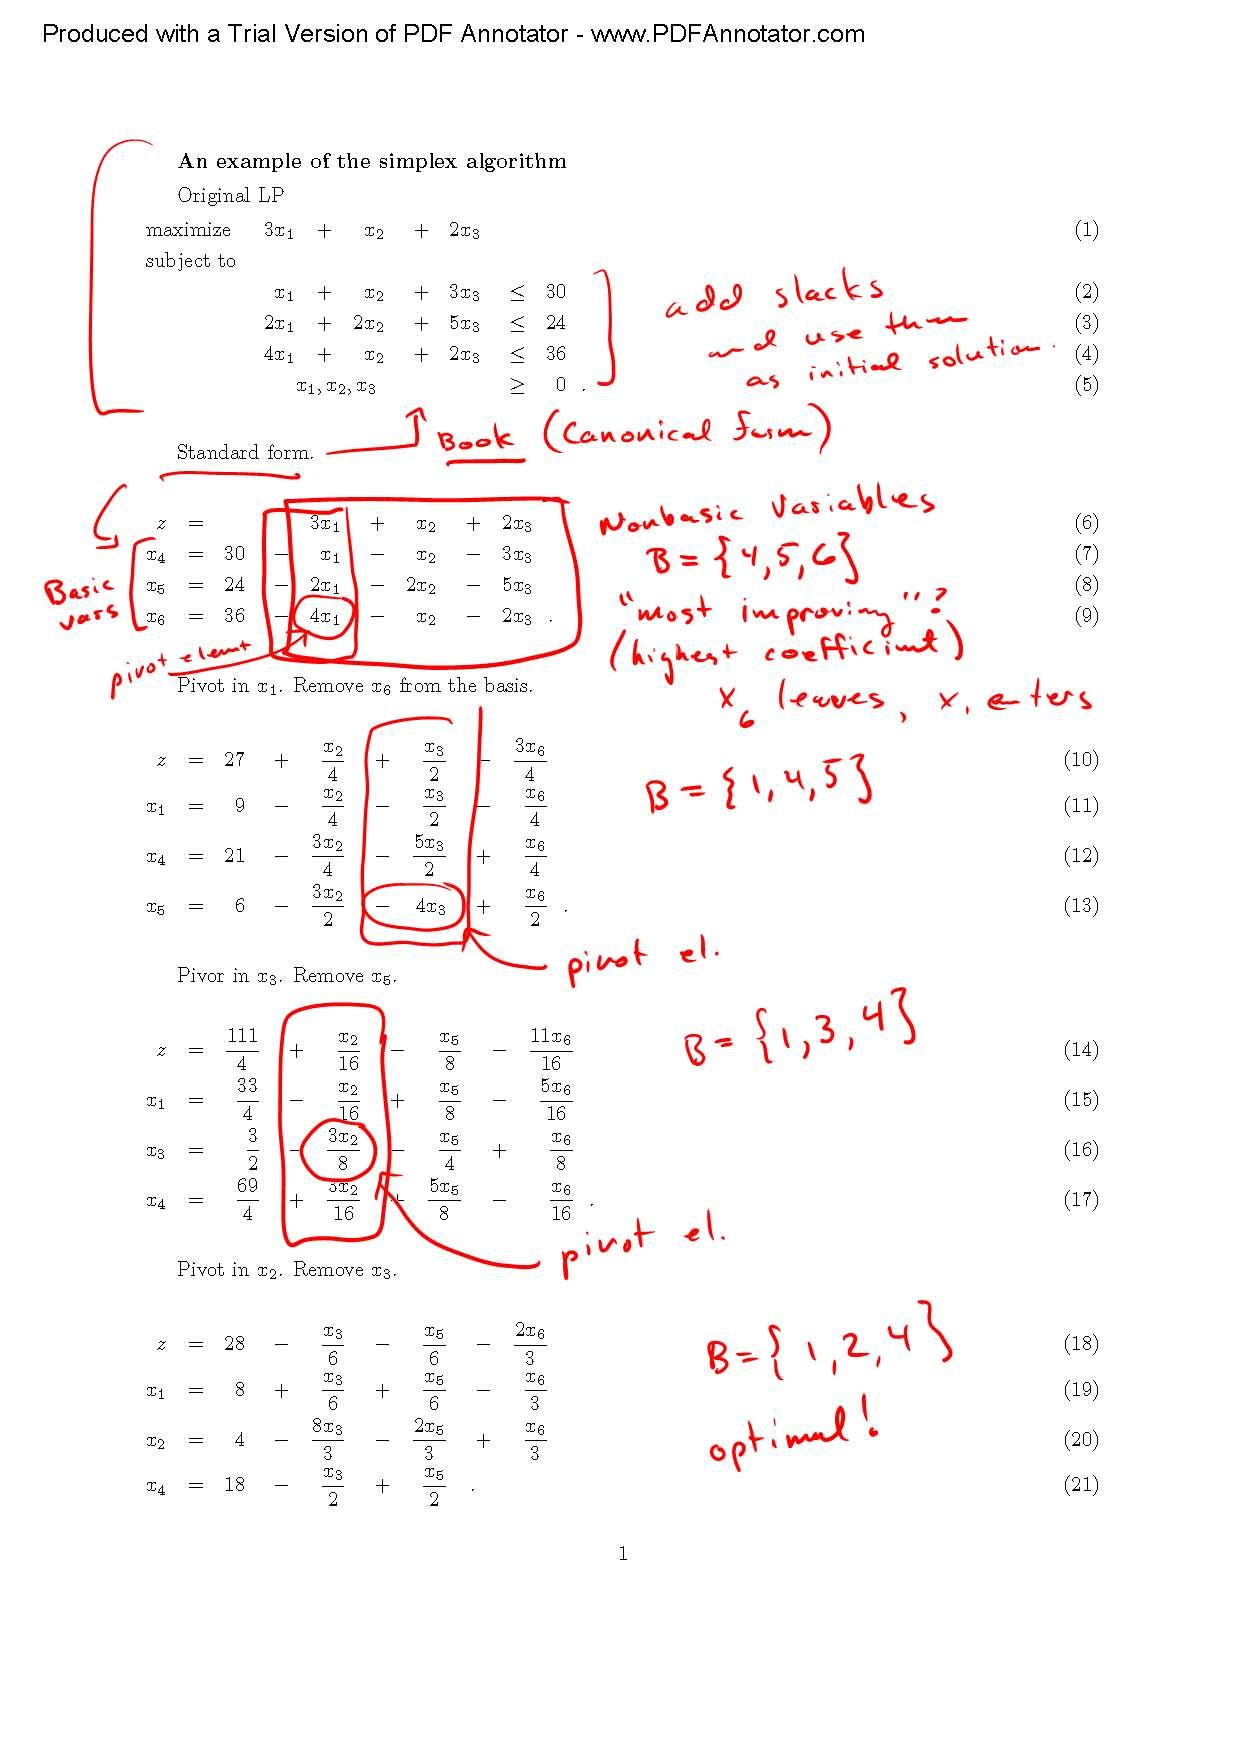 Produced with a Trial Version of PDF Annotator - www.PDFAnnotator.com
An example of the simplex algorithm
Original LP
maximize 3x₁ + x₂ + 2x₃ (1)
subject to
x₁ + x₂ + 3x₃ ≤ 30 (2)
2x₁ + 2x₂ + 5x₃ ≤ 24 (3)
4x₁ + x₂ + 2x₃ ≤ 36 (4)
x₁, x₂, x₃ ≥ 0 . (5)
add slacks
and use them
as initial solution.
Standard form.
Book (Canonical form)
z = 3x₁ + x₂ + 2x₃ (6)
x₄ = 30 − x₁ − x₂ − 3x₃ (7)
x₅ = 24 − 2x₁ − 2x₂ − 5x₃ (8)
x₆ = 36 − 4x₁ − x₂ − 2x₃ . (9)
Basic
vars
pivot elemt
Nonbasic Variables
B = {4,5,6}
"most improving"?
(highest coefficient)
x₆ leaves, x₁ enters
Pivot in x₁. Remove x₆ from the basis.
z = 27 + x₂/4 + x₃/2 − 3x₆/4 (10)
x₁ = 9 − x₂/4 − x₃/2 − x₆/4 (11)
x₄ = 21 − 3x₂/4 − 5x₃/2 + x₆/4 (12)
x₅ = 6 − 3x₂/2 − 4x₃ + x₆/2 . (13)
B = {1,4,5}
pivot el.
Pivor in x₃. Remove x₅.
z = 111/4 + x₂/16 − x₅/8 − 11x₆/16 (14)
x₁ = 33/4 − x₂/16 + x₅/8 − 5x₆/16 (15)
x₃ = 3/2 − 3x₂/8 − x₅/4 + x₆/8 (16)
x₄ = 69/4 + 3x₂/16 + 5x₅/8 − x₆/16 . (17)
B = {1,3,4}
pivot el.
Pivot in x₂. Remove x₃.
z = 28 − x₃/6 − x₅/6 − 2x₆/3 (18)
x₁ = 8 + x₃/6 + x₅/6 − x₆/3 (19)
x₂ = 4 − 8x₃/3 − 2x₅/3 + x₆/3 (20)
x₄ = 18 − x₃/2 + x₅/2 . (21)
B = {1,2,4}
optimal!
1